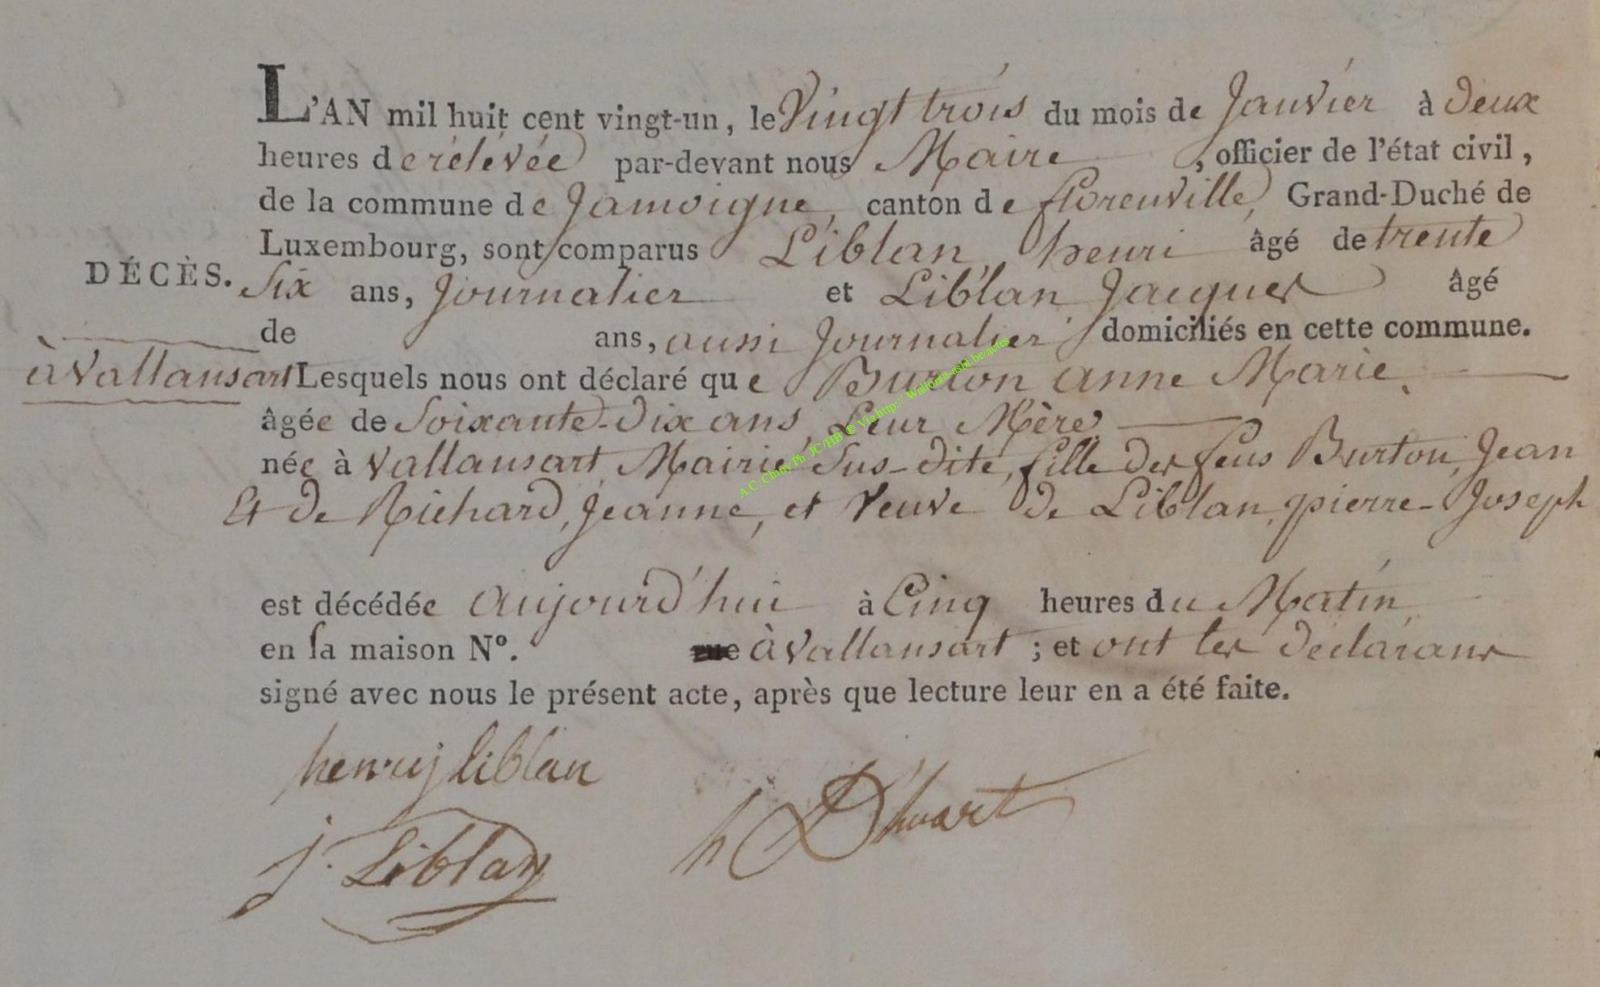 L'AN mil huit cent vingt-un, le Vingt trois du mois de Janvier à deux
heures de rélévée par-devant nous Maire, officier de l'état civil,
de la commune de Jamoigne, canton de florenville, Grand-Duché de
Luxembourg, sont comparus Liblan henri âgé de trente
DÉCÈS. Six ans, Journalier et Liblan Jacques âgé
de ans, aussi Journalier domiciliés en cette commune.
à Vallansart Lesquels nous ont déclaré que Burton anne Marie
âgée de Soixante-dix ans, Leur Mère
née à Vallansart Mairie Sus-dite, fille des feus Burton, Jean
Et de Richard, Jeanne, et Veuve de Liblan, pierre-Joseph
est décédée aujourd'hui à Cinq heures du Matin
en sa maison N°. rue à Vallansart ; et ont les déclarans
signé avec nous le présent acte, après que lecture leur en a été faite.
henrij liblan
h D'huart
j. Liblan